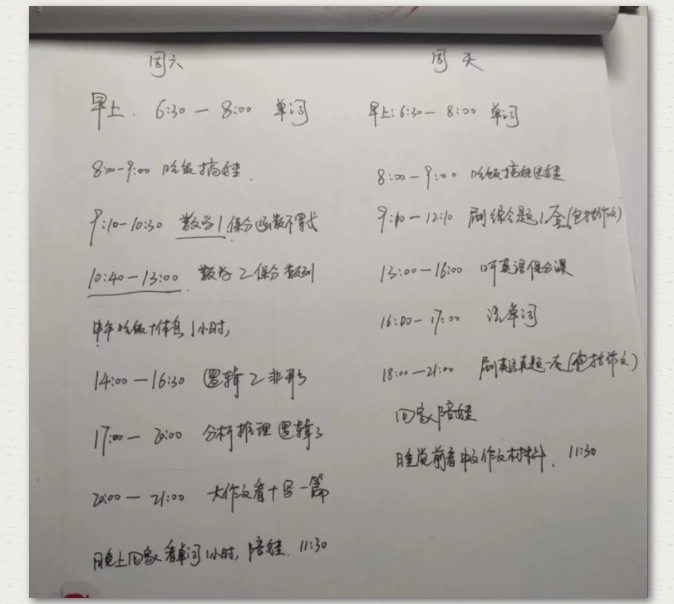 周六
早上. 6:30 — 8:00 单词
8:00-9:00 吃饭搞娃.
9:10-10:30 数学1保分函数不等式
10:40-13:00. 数学2保分数列
中午吃饭+休息1小时,
14:00-16:30 逻辑2非形
17:00-20:00 分析推理逻辑3
20:00-21:00 大作文看+写一篇
晚上回家看单词1小时, 陪娃. 11:30
周天
早上: 6:30 — 8:00 单词
8:00-9:00 吃饭搞娃送娃
9:10-12:10 刷综合真题1套(包括作文)
13:00-16:00 听英语保分课
16:00-17:00 单词
18:00-21:00 刷英语真题一套(包括作文)
回家陪娃
睡觉前看中文作文材料. 11:30